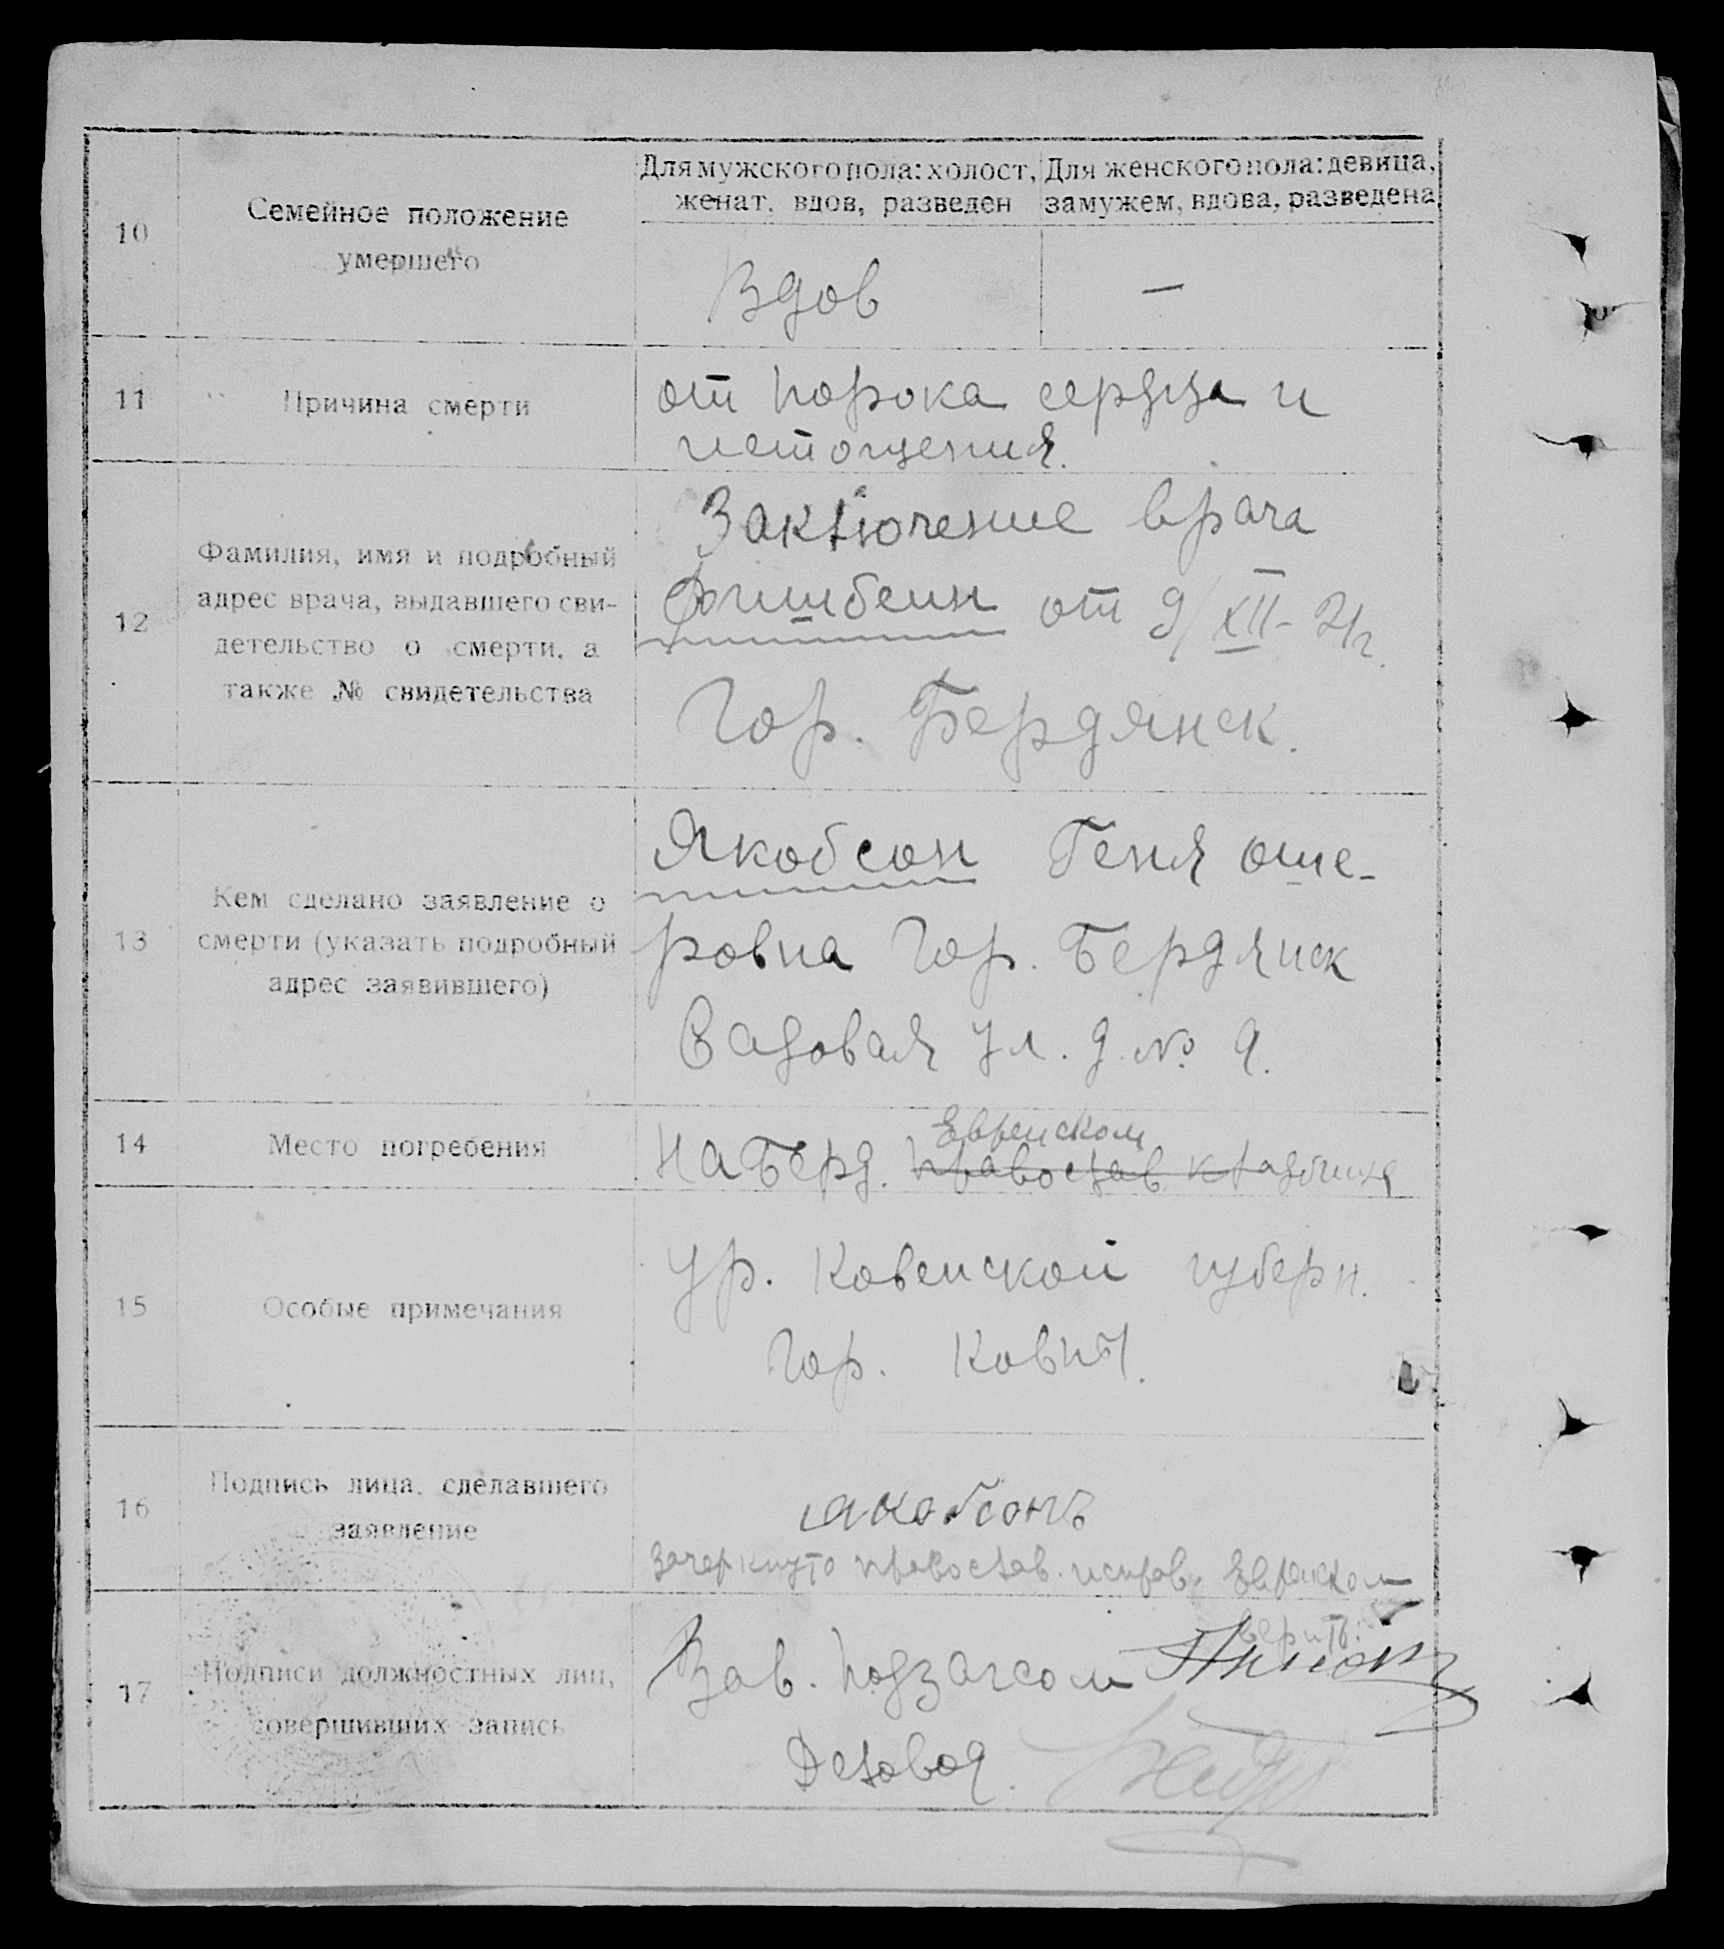 Для мужского пола: холост, женат, вдов, разведен
Для женского пола: девица, замужем, вдова, разведена
10
Семейное положение
умершего
Вдов
—
11
Причина смерти
от порока сердца и
истощения.
12
Фамилия, имя и подробный
адрес врача, выдавшего сви-
детельство о смерти, а
также № свидетельства
Заключение врача
Фишбеин от 9/XII-21г.
Гор. Бердянск.
13
Кем сделано заявление о
смерти (указать подробный
адрес заявившего)
Якобсон Геня Оше-
ровна Гор. Бердянск
Садовая ул. д. № 9.
14
Место погребения
Еврейском
На Берд. православ. кладбище
15
Особые примечания
Ур. Ковенской губерн.
Гор. Ковны.
16
Подпись лица, сделавшего
заявление
Якобсонъ
Зачеркнуто православ. исправ. Еврейском
верить:
17
Подписи должностных лиц,
совершивших запись
Зав. Подзагсом
Деловод.